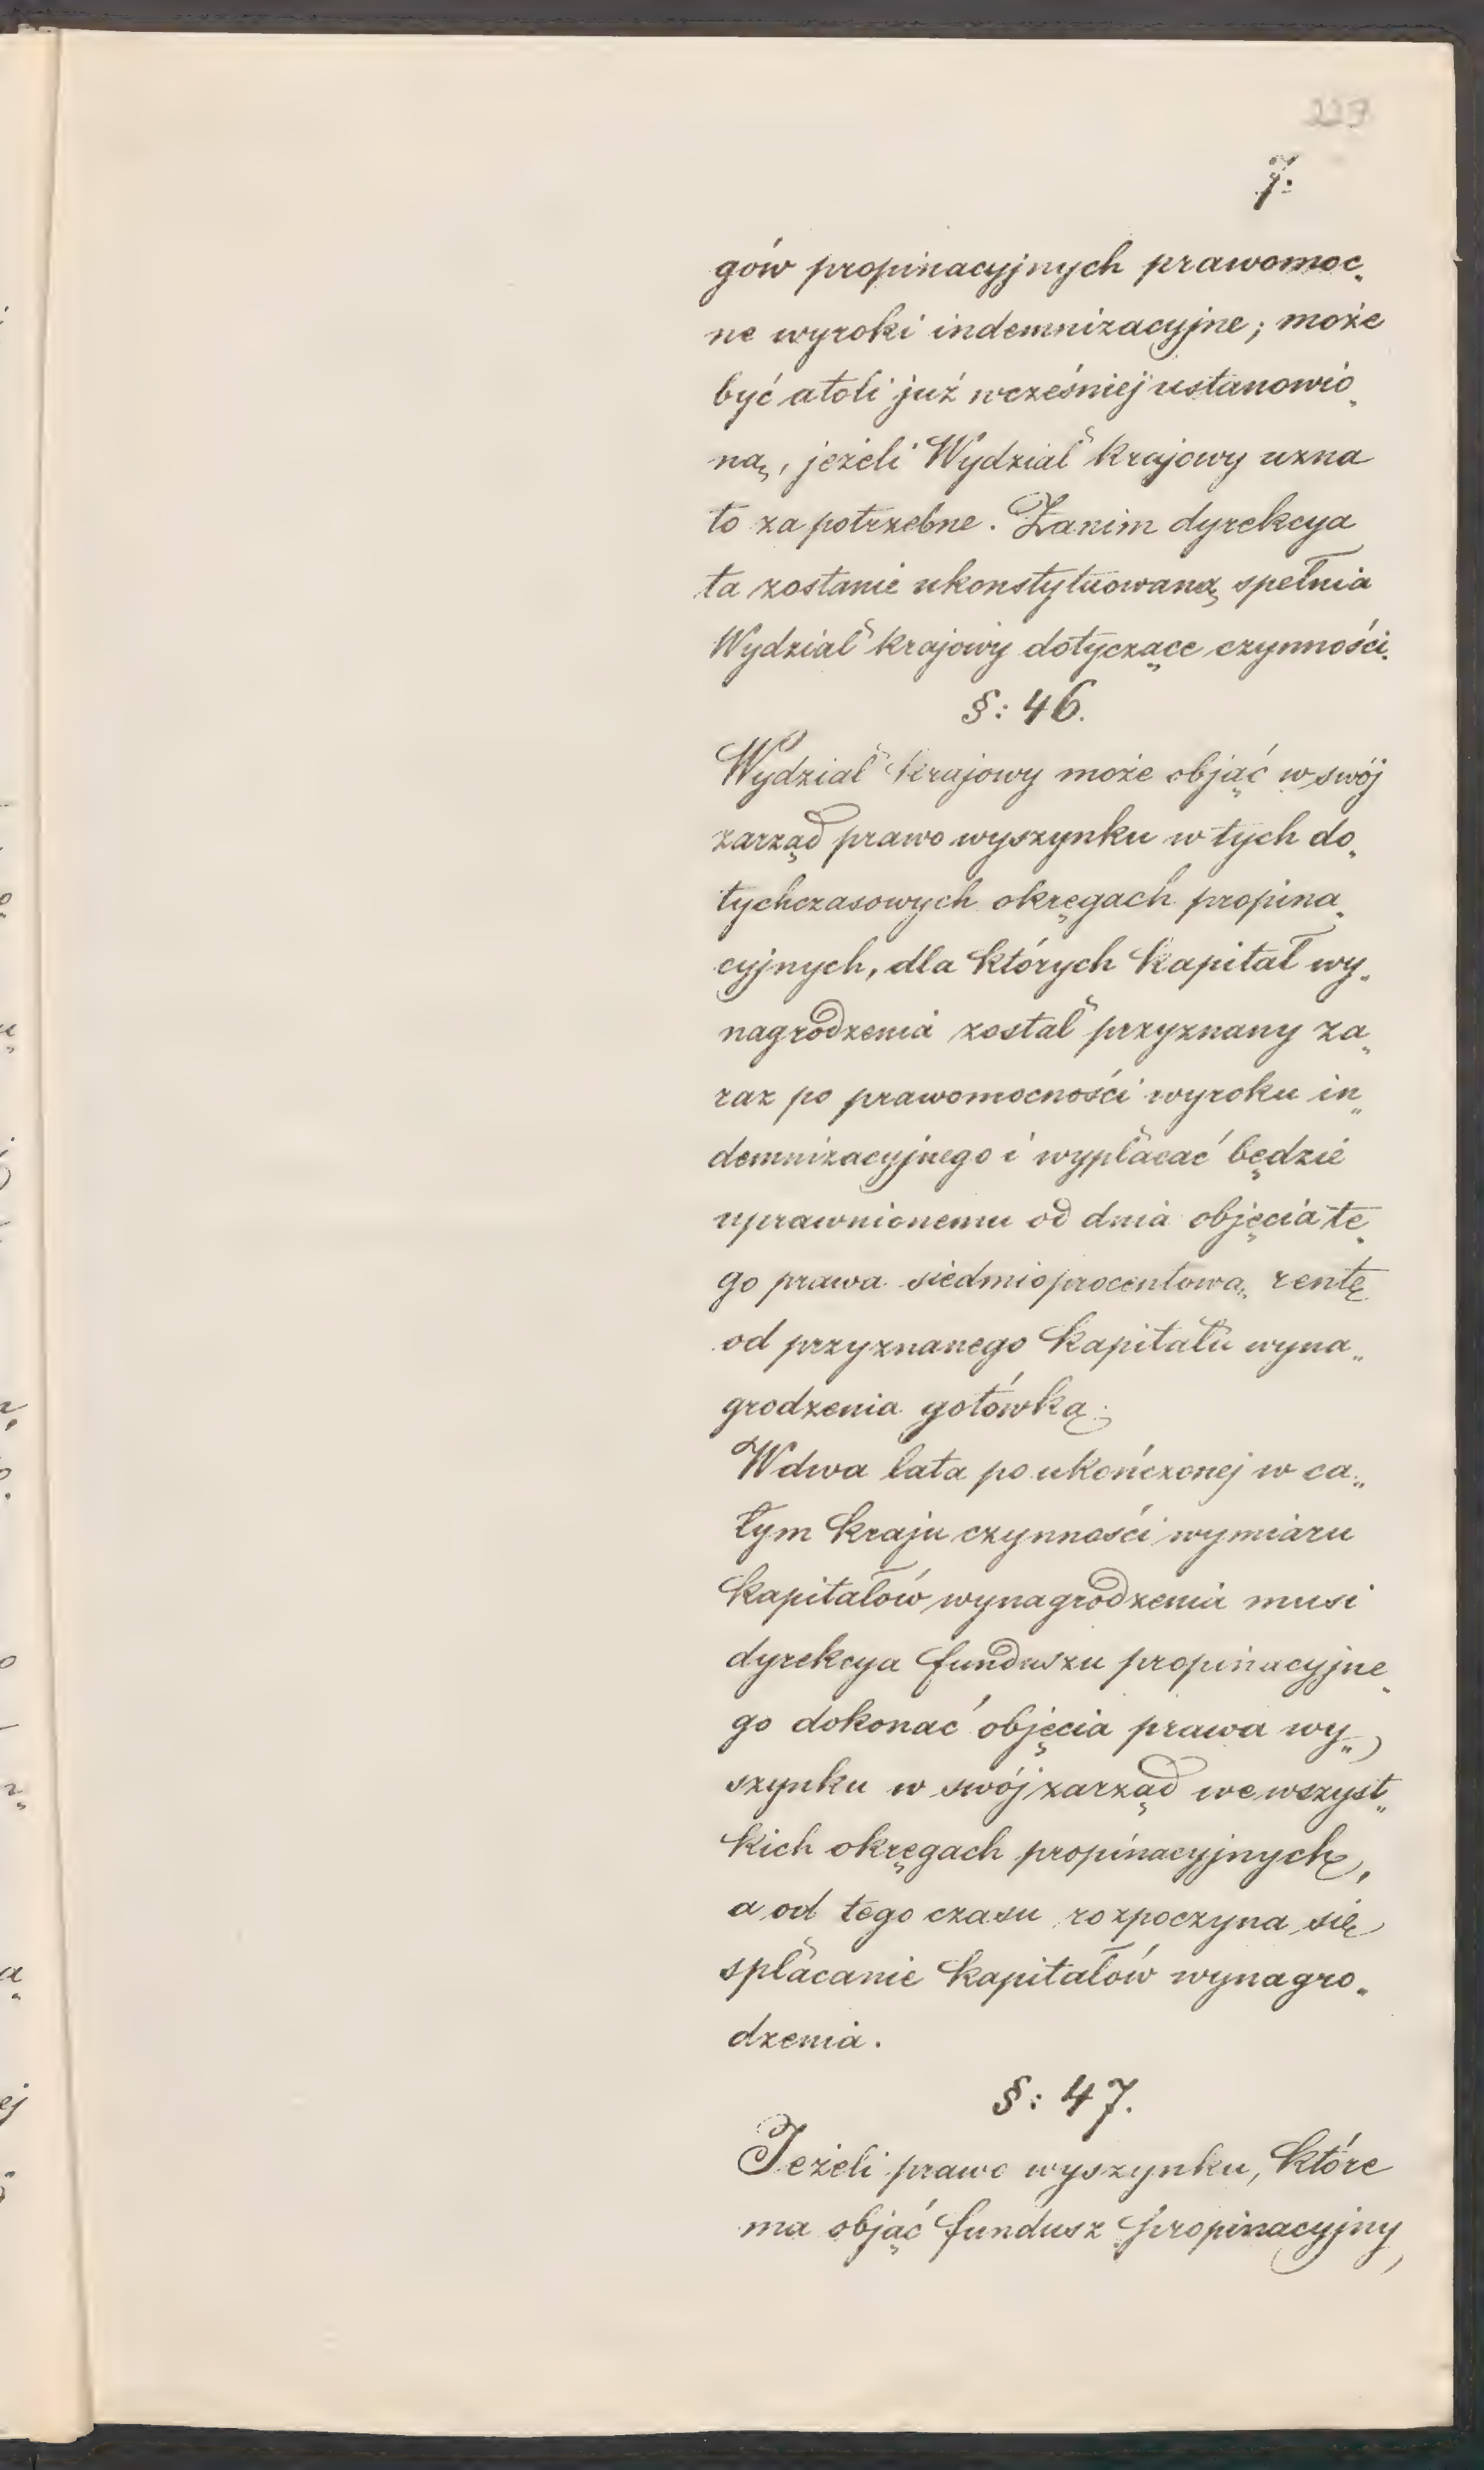 229
7.
gów propinacyjnych prawomoc„
ne wyroki indemnizacyjne; może
być atoli już wcześniej ustanowio„
ną, jeżeli Wydział krajowy uzna
to za potrzebne. Zanim dyrekcya
ta zostanie ukonstytuowaną spełnia
Wydział krajowy dotyczące czynności.
§: 46.
Wydział krajowy może objąć w swój
zarząd prawo wyszynku w tych do„
tychczasowych okręgach propina„
cyjnych, dla których kapitał wy„
nagrodzenia został przyznany za„
raz po prawomocności wyroku in„
demnizacyjnego i wypłacać będzie
uprawnionemu od dnia objęcia te„
go prawa siedmioprocentową rentę
od przyznanego kapitału wyna„
grodzenia gotówką.
W dwa lata po ukończonej w ca„
łym kraju czynności wymiaru
kapitałów wynagrodzenia musi
dyrekcya funduszu propinacyjne„
go dokonać objęcia prawa wy„
szynku w swój zarząd we wszyst„
kich okręgach propinacyjnych,
a od tego czasu rozpoczyna się
spłacanie kapitałów wynagro„
dzenia.
§: 47.
Jeżeli prawo wyszynku, które
ma objąć fundusz propinacyjny,